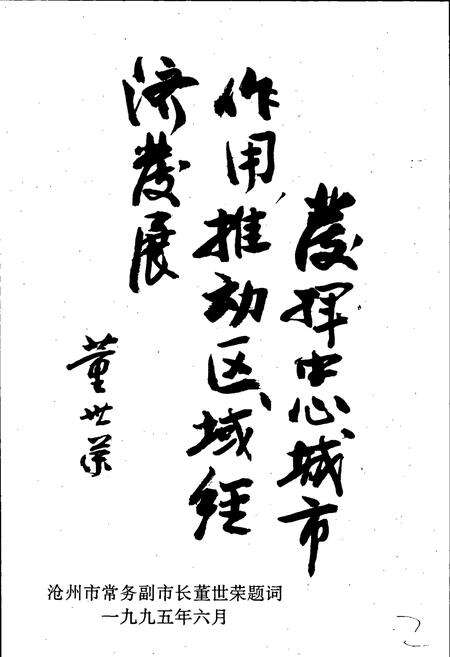 發揮中心城市
作用,推动区域经
济發展
董世荣
沧州市常务副市长董世荣题词
一九九五年六月